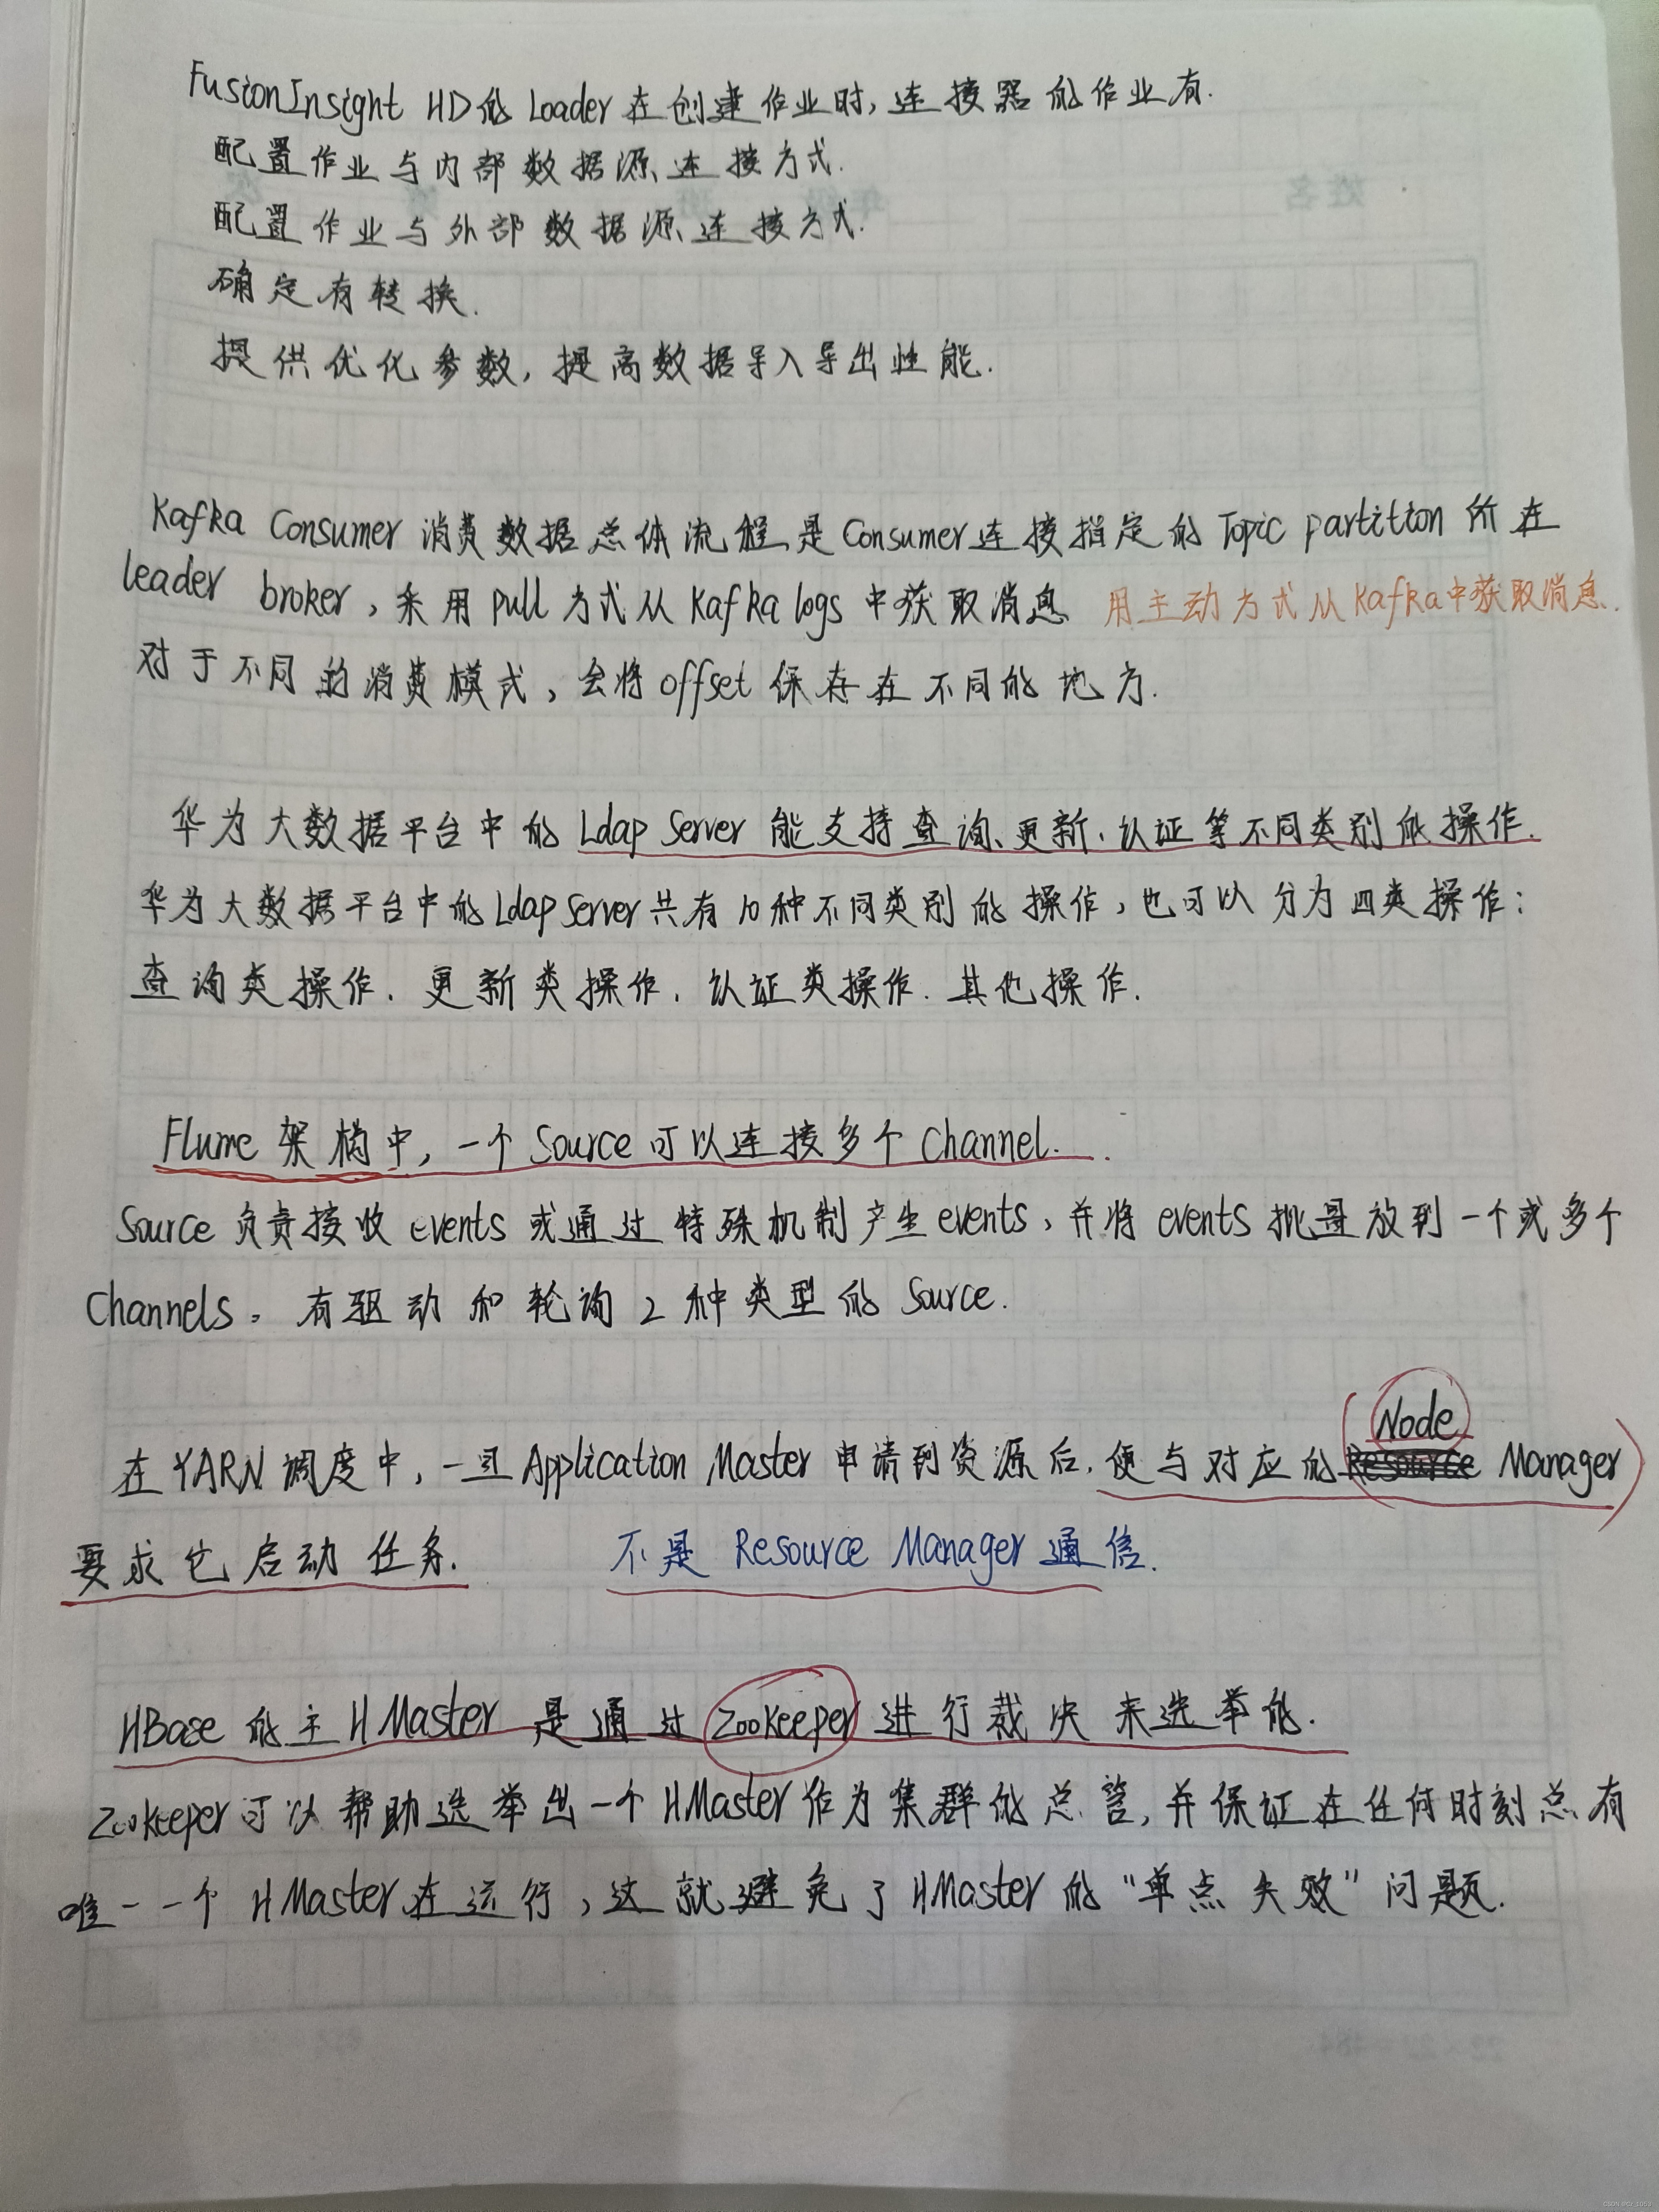 FusionInsight HD的Loader在创建作业时,连接器的作业有.
配置作业与内部数据源连接方式.
配置作业与外部数据源连接方式.
确定有转换.
提供优化参数,提高数据导入导出性能.
Kafka Consumer 消费数据总体流程是Consumer连接指定的Topic partition所在
leader broker,采用pull方式从Kafka logs中获取消息 用主动方式从Kafka中获取消息.
对于不同的消费模式,会将offset保存在不同的地方.
华为大数据平台中的Ldap Server能支持查询、更新、认证等不同类别的操作.
华为大数据平台中的Ldap Server共有10种不同类别的操作,也可以分为四类操作:
查询类操作.更新类操作.认证类操作.其他操作.
Flume架构中,一个Source可以连接多个Channel.
Source负责接收events或通过特殊机制产生events,并将events批量放到一个或多个
Channels。有驱动和轮询2种类型的Source.
Node
在YARN调度中,一旦Application Master申请到资源后,便与对应的Resource Manager
要求它启动任务. 不是Resource Manager通信.
HBase的主HMaster是通过Zookeeper进行裁决来选举的.
Zookeeper可以帮助选举出一个HMaster作为集群的总管,并保证在任何时刻总有
唯一一个HMaster在运行,这就避免了HMaster的“单点失效”问题.